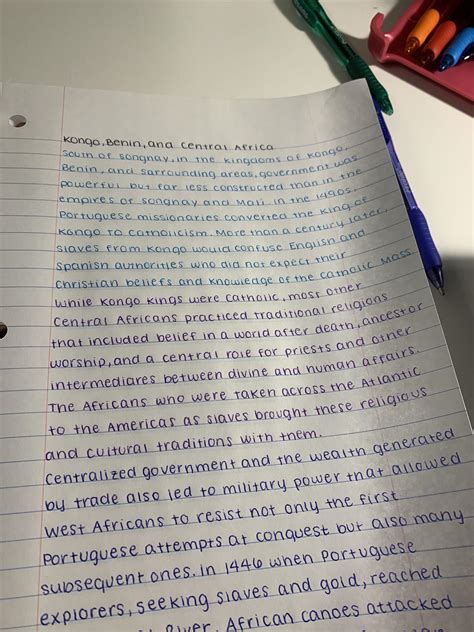 Kongo, Benin, and Central Africa
South of songnay, in the kingdoms of Kongo,
Benin, and sarrounding areas, government was
powerful but far less constructed than in the
empires of songnay and Mali. in the 1490s,
Portuguese missionaries converted the King of
Kongo to catholicism. More than a century later,
slaves from Kongo would confuse English and
Spanish authorities who did not expect their
Christian beliefs and knowledge of the catholic Mass.
While Kongo Kings were catholic, most other
Central Africans practiced traditional religions
that included belief in a world after death, ancestor
worship, and a central role for priests and other
intermediares between divine and human affairs.
The Africans who were taken across the Atlantic
to the Americas as slaves brought these religious
and cultural traditions with them.
Centralized government and the wealth generated
by trade also led to military power that allowed
West Africans to resist not only the first
Portuguese attempts at conquest but also many
subsequent ones. In 1446 when Portuguese
explorers, seeking slaves and gold, reached
River, African canoes attacked